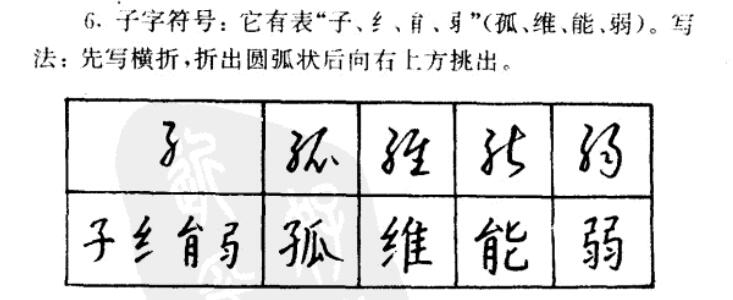 6. 子字符号：它有表“子、纟、䏍、弓”(孤、维、能、弱)。写
法：先写横折，折出圆弧状后向右上方挑出。
孤 维 能 弱
子 纟 䏍 弓 孤 维 能 弱